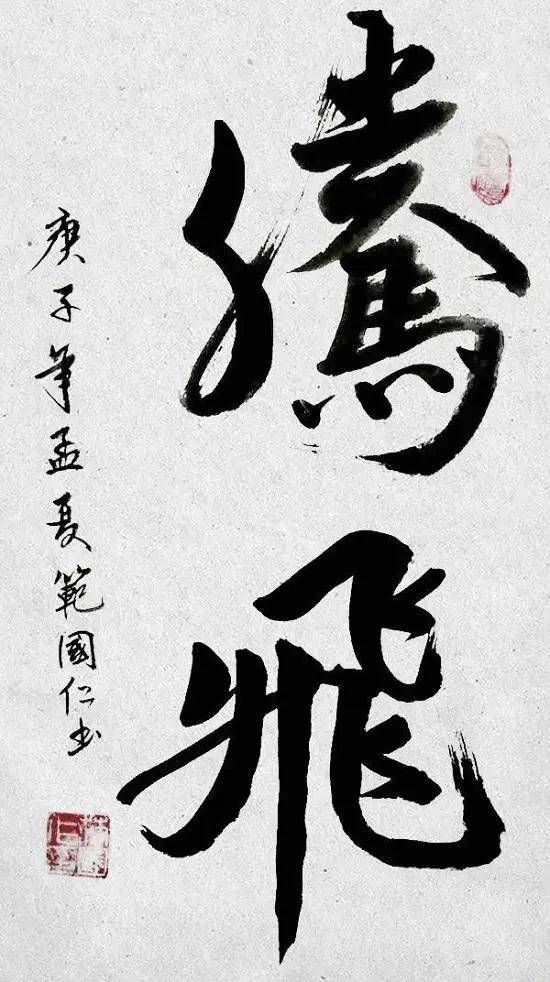 騰飛
庚子年孟夏範國仁书